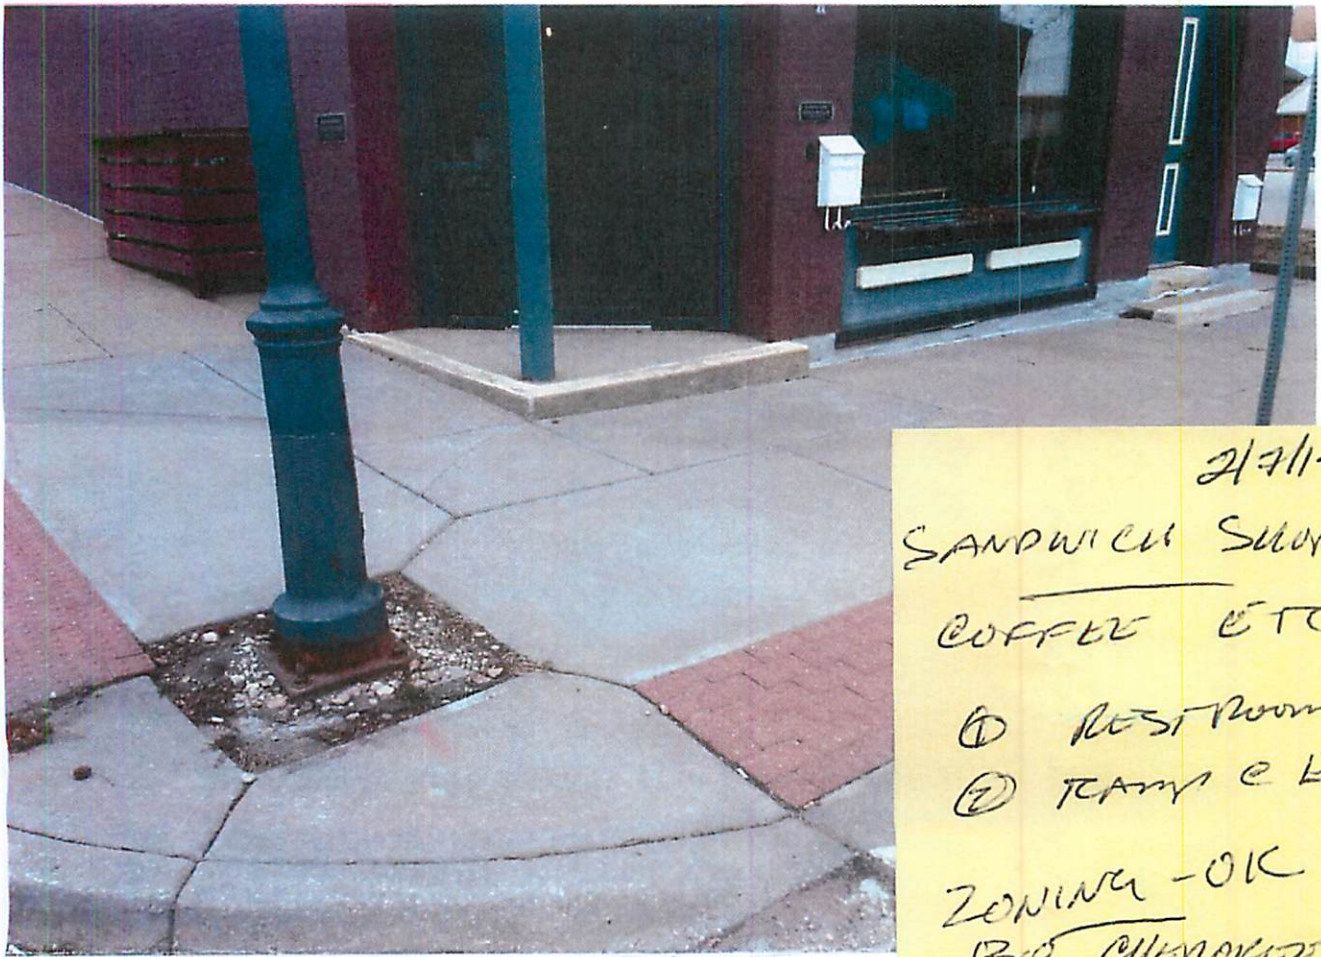 2/7/1
SANDWICH SHOP
COFFEE ETC
① RESTROOM
② RAMP @
ZONING - OK